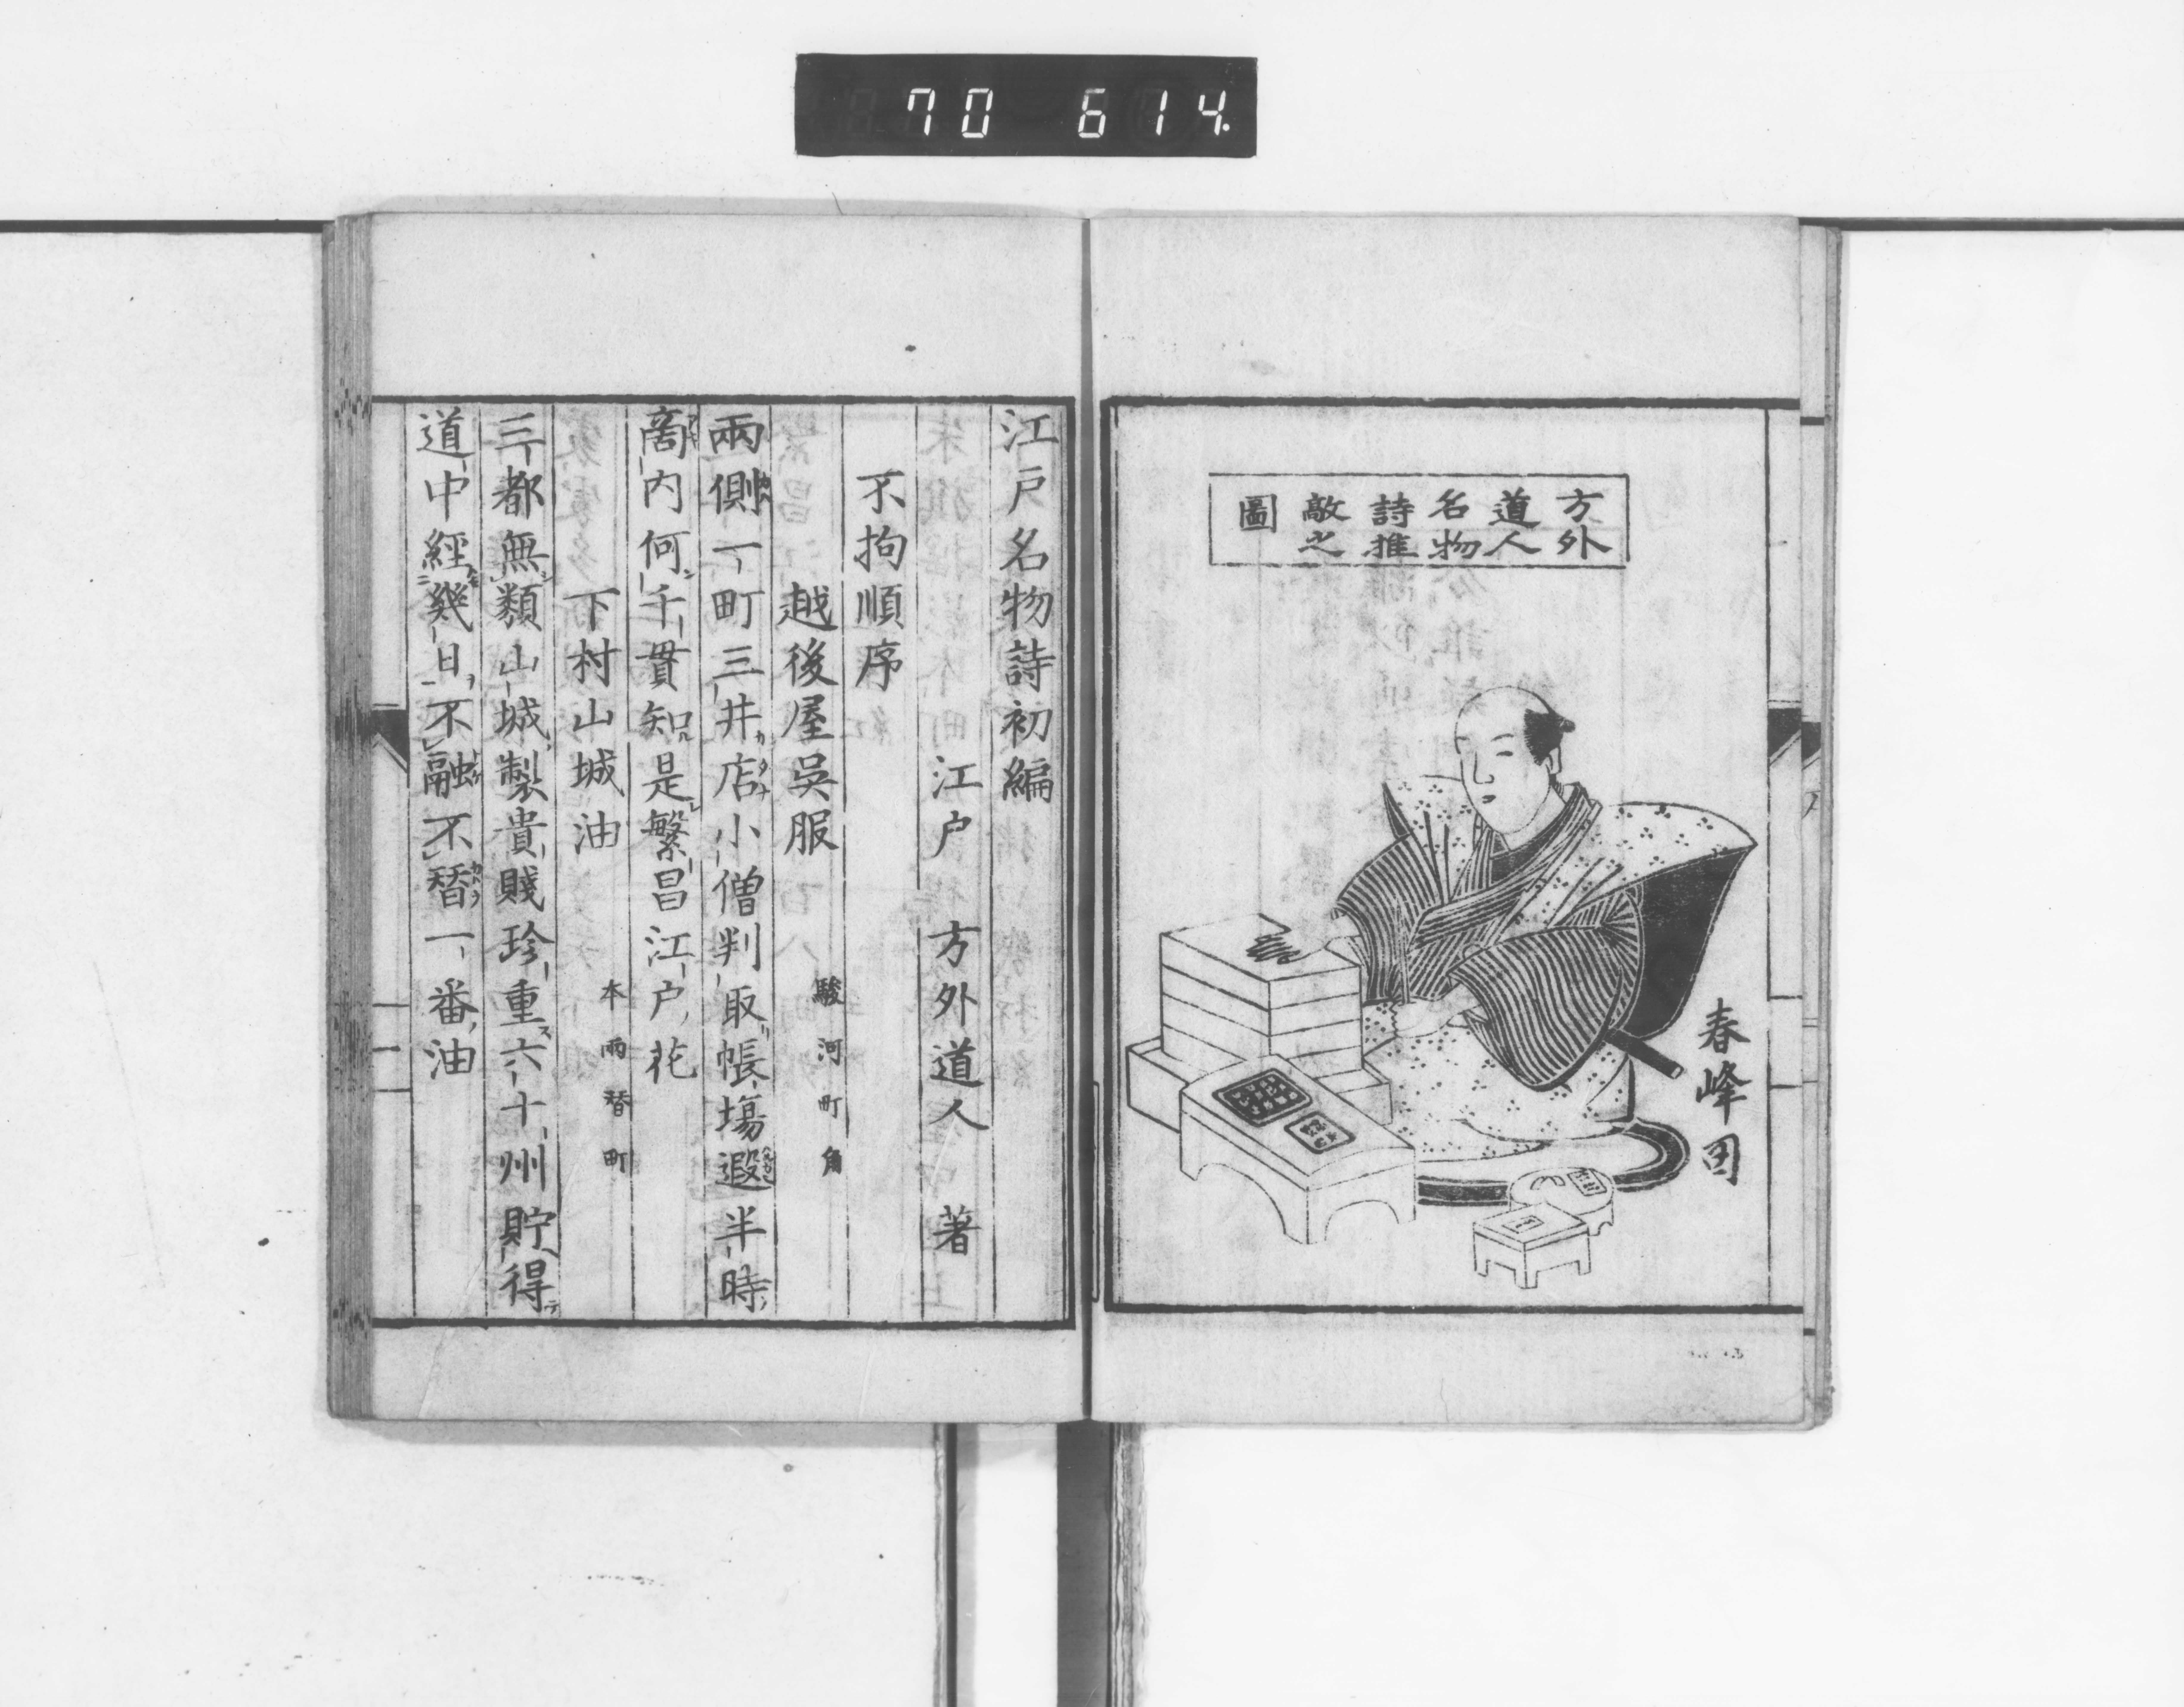 70 614.
方外
道人
名物
詩推
敵之
圖
春峰画
江戸名物詩初編
江戸 方外道人 著
不拘順序
越後屋呉服 駿河町角
兩側一町三井店小僧判取帳場遐半時
商内何千貫知是繁昌江戸花
下村山城油 本両替町
三都無類山城製貴賤珍重六十州貯得
道中經幾日不融不替一番油